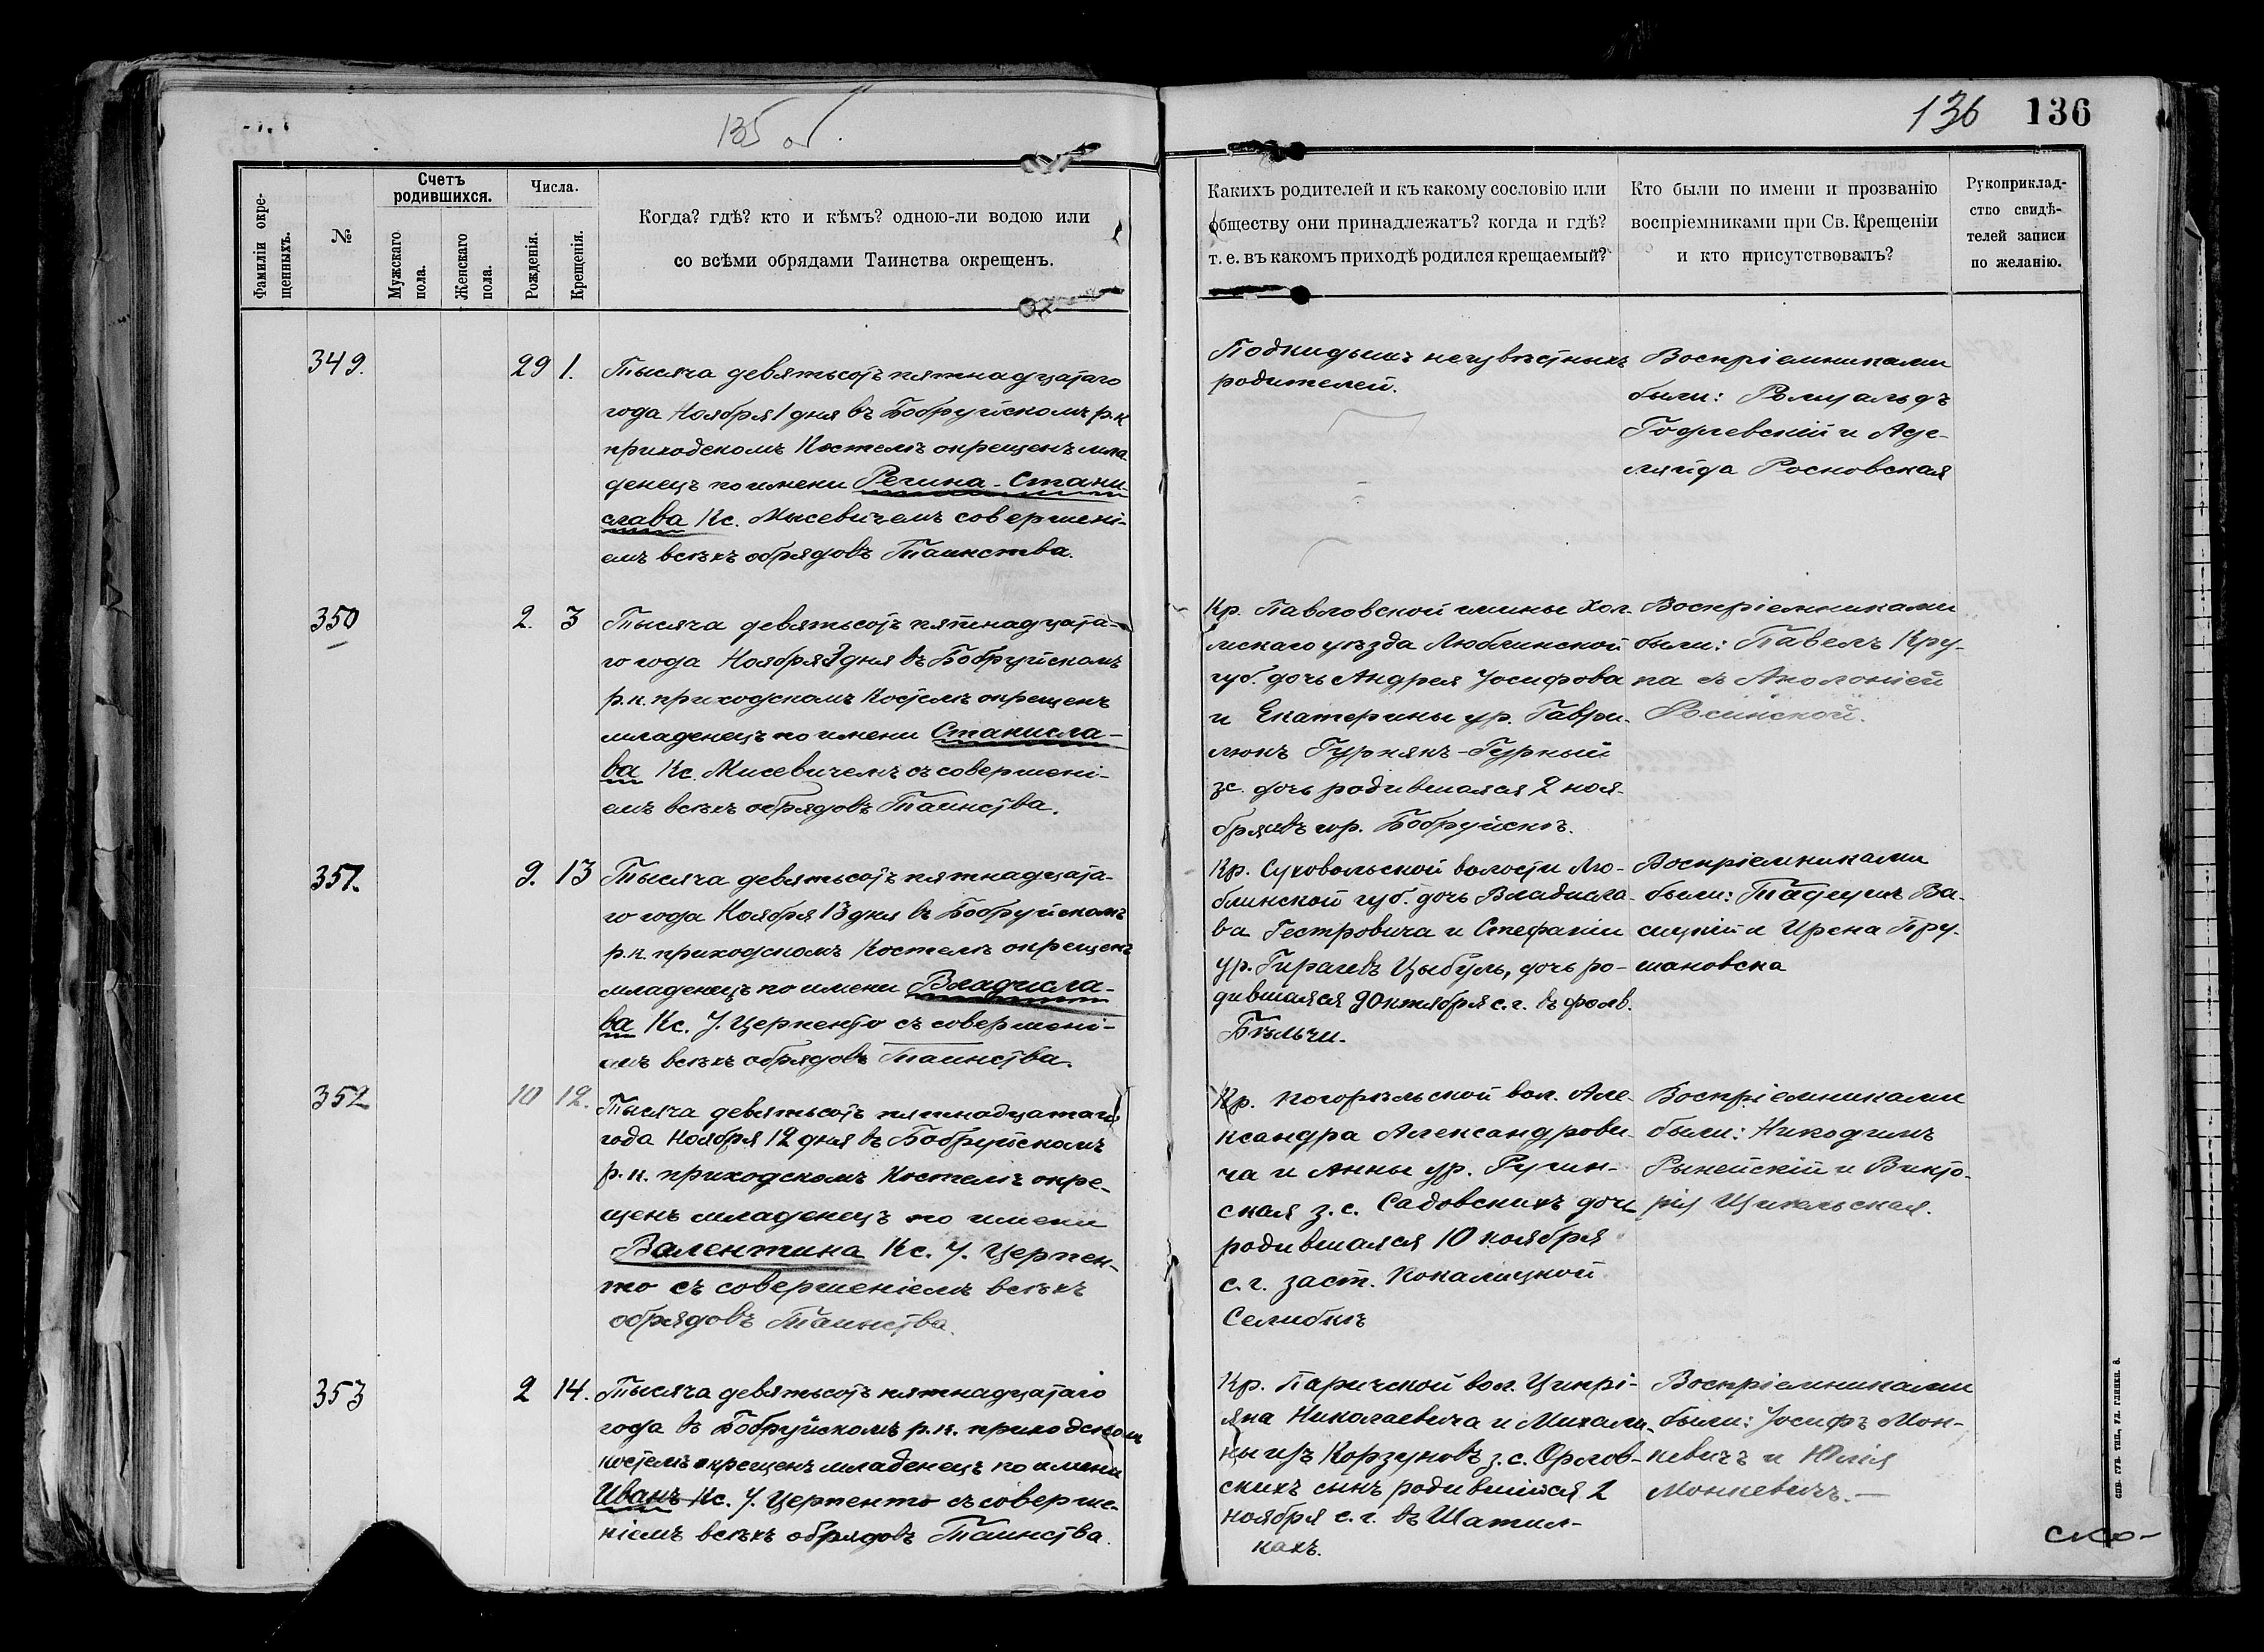 135 об.
136 136
Фамиліи окре-
щенныхъ.
№
Счетъ
родившихся.
Мужскаго
пола.
Женскаго
пола.
Числа.
Рожденія.
Крещенія.
Когда? гдѣ? кто и кѣмъ? одною-ли водою или
со всѣми обрядами Таинства окрещенъ.
Какихъ родителей и къ какому сословію или
обществу они принадлежатъ? когда и гдѣ?
т. е. въ какомъ приходѣ родился крещаемый?
Кто были по имени и прозванію
воспріемниками при Св. Крещеніи
и кто присутствовалъ?
Рукоприклад-
ство свидѣ-
телей записи
по желанію.
349. 29 1.
Тысяча девятьсотъ пятнадцатаго
года Ноября 1 дня въ Бобруйскомъ р.к
приходскомъ Костелѣ окрещенъ мла
денецъ по имени Регина-Стани
слава Кс. Мисевичемъ совершені-
емъ всѣхъ обрядовъ Таинства.
Подкидышъ неизвѣстныхъ
родителей.
Воспріемниками
были: Ромуальдъ
Годлевскій и Аде-
ляида Росновская
350 2. 3
Тысяча девятьсотъ пятнадцата-
го года Ноября 3 дня въ Бобруйскомъ
р.к. приходскомъ Костелѣ окрещенъ
младенецъ по имени Станисла-
ва Кс. Мисевичемъ съ совершені-
емъ всѣхъ обрядовъ Таинства.
Кр. Павловской гмины Хол-
мскаго уѣзда Люблинской
губ. дочь Андрея Іосифова
и Екатерины ур. Гаври-
люкъ Гурнякъ-Гурный
зс. дочь родившаяся 2 ноя-
бря въ гор. Бобруйскѣ.
Воспріемниками
были: Павелъ Кру-
па съ Аполоніей
Росинской.
351. 9. 13
Тысяча девятьсотъ пятнадцата-
го года Ноября 13 дня въ Бобруйскомъ
р.к. приходскомъ Костелѣ окрещенъ
младенецъ по имени Владисла-
ва Кс. У. Церпенто съ совершені-
емъ всѣхъ обрядовъ Таинства.
Кр. Суховольской волости Лю-
блинской губ. дочь Владисла-
ва Петровича и Стефаніи
ур. Гирачевъ Цыбуль, дочь ро-
дившаяся 9 Октября с.г. въ фолв.
Бѣльчи.
Воспріемниками
были: Тадеушъ Ва-
сицкій и Ирена Пру-
шановска
352 10 12.
Тысяча девятьсотъ пятнадцатаго
года Ноября 12 дня въ Бобруйскомъ
р.к. приходскомъ Костелѣ окре-
щенъ младенецъ по имени
Валентина Кс. У. Церпен-
то съ совершеніемъ всѣхъ
обрядовъ Таинства.
Кр. Погорѣльской вол. Але-
ксандра Александрови-
ча и Анны ур. Гугин-
ская з.с. Садовскихъ дочь
родившаяся 10 ноября
с.г. заст. Покалицкой
Селибкѣ
Воспріемниками
были: Никодимъ
Рынейскій и Викто-
рія Щигельская.
353 2 14.
Тысяча девятьсотъ пятнадцатаго
года въ Бобруйскомъ р.к. приходскомъ
костелѣ окрещенъ младенецъ по имени
Иванъ Кс. У. Церпенто съ соверше-
ніемъ всѣхъ обрядовъ Таинства.
Кр. Паричской вол. Ципрі-
яна Николаевича и Михали-
ны изъ Корзуновъ з.с. Орлов-
скихъ сынъ родившійся 2
ноября с.г. въ Шатил-
кахъ.
Воспріемниками
были: Іосифъ Мон-
кевичъ и Юлія
Монкевичъ.—
ско-
СПБ. ГУБ. ТИП., УЛ. ГЛИНКИ. 8.